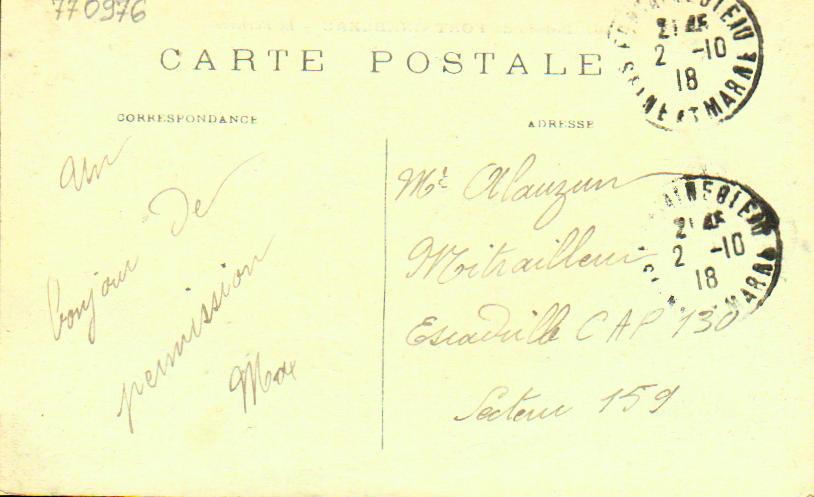 770976
CARTE POSTALE
CORRESPONDANCE
ADRESSE
un
bonjour de
permission
Max
Mr Alauzun
Mitrailleur
Escadrille CAP 130
Secteur 159
FONTAINEBLEAU
2 -10
18
SEINE ET MARNE
FONTAINEBLEAU
2 -10
18
SEINE ET MARNE